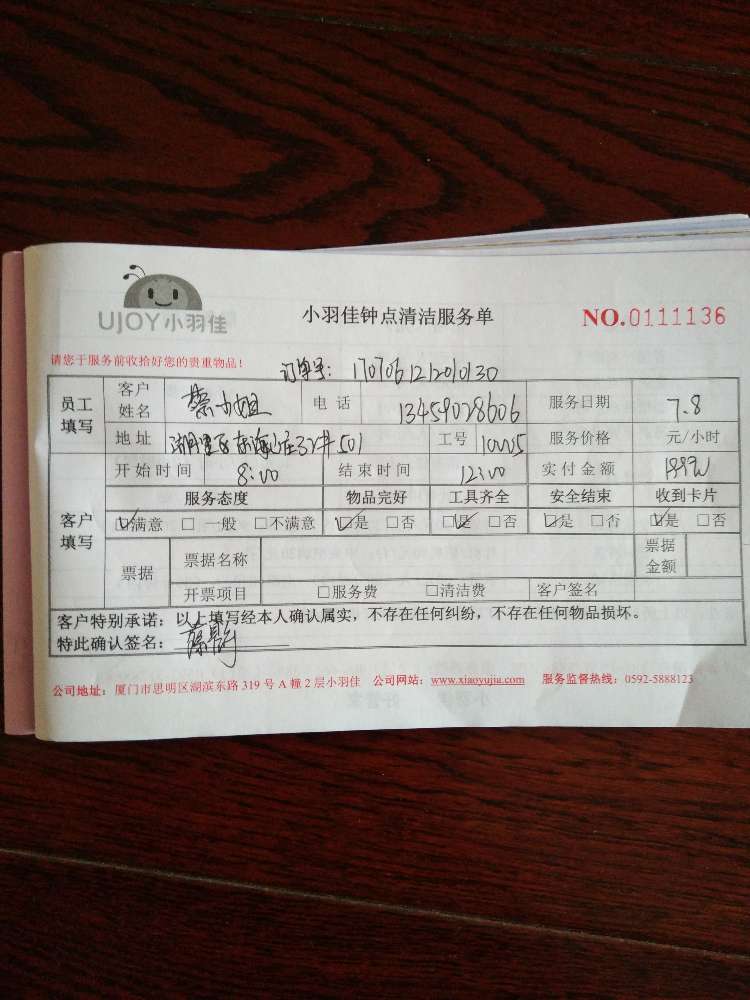 UJOY小羽佳
小羽佳钟点清洁服务单
NO.0111136
请您于服务前收拾好您的贵重物品！
订单号：170706121201030
员工填写 客户姓名 蔡小姐 电话 13459028606 服务日期 7.8
地址 湖里区东海山庄32号501 工号 服务价格 元/小时
开始时间 8:00 结束时间 12:00 实付金额
客户填写 服务态度 物品完好 工具齐全 安全结束 收到卡片
☑满意 □一般 □不满意 ☑是 □否 ☑是 □否 ☑是 □否 ☑是 □否
票据 票据名称 票据金额
开票项目 □服务费 □清洁费 客户签名
客户特别承诺：以上填写经本人确认属实，不存在任何纠纷，不存在任何物品损坏。
特此确认签名：
公司地址：厦门市思明区湖滨东路 319 号 A 幢 2 层小羽佳 公司网站：www.xiaoyujia.com 服务监督热线：0592-5888123